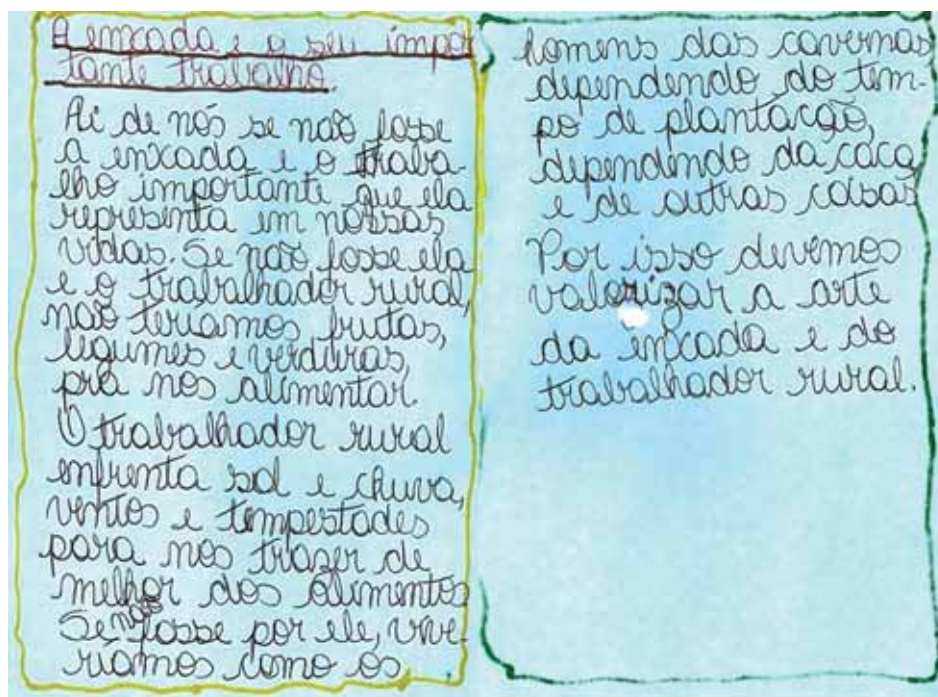 A enxada e o seu impor
tante trabalho.
Ai de nós se não fosse
a enxada e o traba-
lho importante que ela
representa em nossas
vidas. Se não fosse ela
e o trabalhador rural,
não teriamos frutas,
legumes e verduras,
pra nos alimentar.
O trabalhador rural
enfrenta sol e chuva,
ventos e tempestades
para nos trazer de
melhor dos alimentos
Se não fosse por ele, vive-
riamos como os
homens das cavernas
dependendo do tem-
po de plantação,
dependendo da caça
e de outras coisas
Por isso devemos
valorizar a arte
da enxada e do
trabalhador rural.